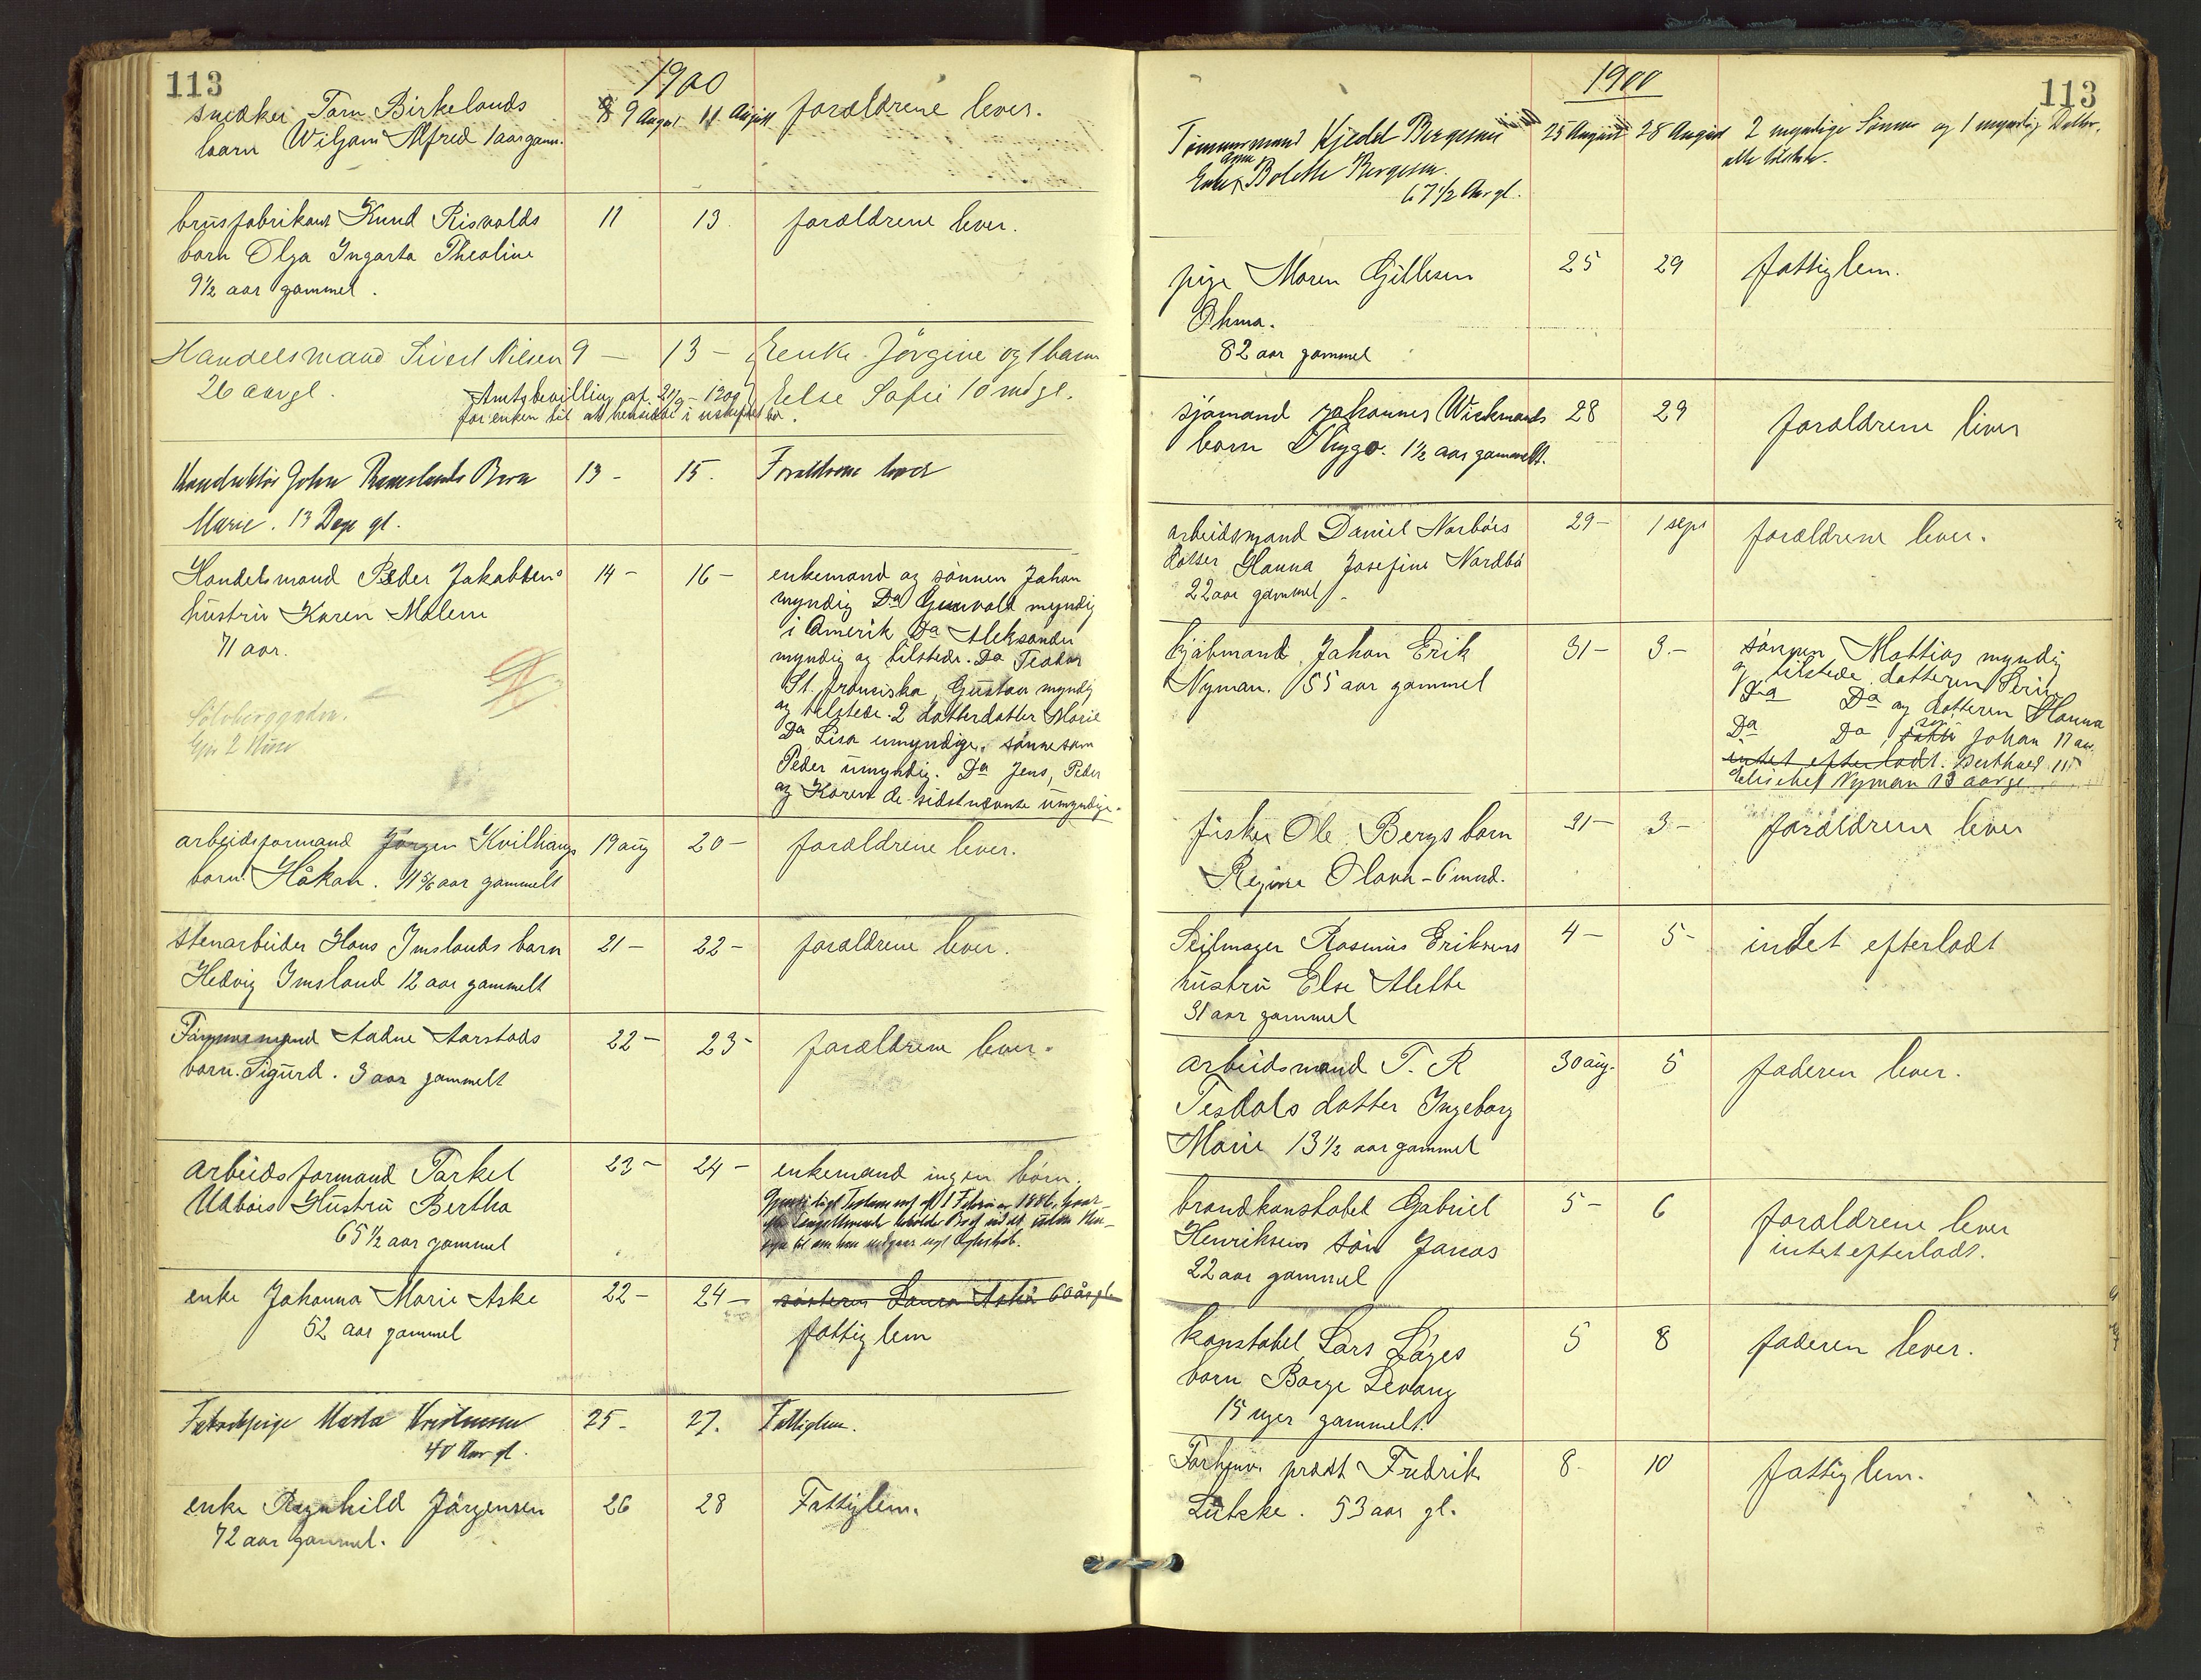 113
1900
snedker Tørn Birkelands 9 August 11 August forældrene lever.
barn Wiljam Alfred 1 aar gam.
brusfabrikant Knud Risvolds 11 13 forældrene lever.
barn Olga Ingarta Theoline
9½ aar gammel.
Handelsmand Sivert Nilsen 9 — 13 — Eenke Jörgine og 1 barn
26 aar gl. Amtsbevilling af 21/9 - 1900 Else Sofie 10 md gl.
for enken til at hensidde i uskiftet bo.
Konduktør John Ramslands Barn 13 - 15. Forældrene lever
Marie. 13 Dage gl.
Handelsmand Peder Jakobsens 14 - 16 - enkemand og sönnen Johan
hustru Karen Malene myndig Do Gunvald myndig
71 aar. i Amerik Do Aleksander
myndig og tilstede. Do Teodor
St. fransiska, Gustav myndig
og tilstede. 2 datterdatter Marie
Sölvberggaden. Do Lisa umyndige. sönnesøn
Eier 2 Huse Peder umyndig. Do Jens, Peder
og Karen de sidstnævnte umyndige.
arbeidsformand Jørgen Kvilhaugs 19 aug 20 - forældrene lever.
barn Håkon. 11 5/6 aar gammelt
Stenarbeider Hans Imslands barn 21 - 22 - forældrene lever.
Hedvig Imsland 12 aar gammelt
Tømmermand Aadne Aarstads 22 - 23 - forældrene lever.
barn. Sigurd. 3 aar gammelt
arbeidsformand Torkel 23 - 24 - enkemand ingen børn.
Udbøis Hustru Bertha Gjensidigt Testament af 1 Februar 1886,
65½ aar gammel
enke Johanna Marie Aske 22 - 24 - søsteren Laura Aske 60 år gl.
52 aar gammel fattiglem
Fabrikpige Marta Kristensen 25 - 27. Fattiglem.
40 Aar gl.
enke Ragnhild Jørgensen 26 28 Fattiglem.
72 aar gammel.
113
1900
Tømmermand Kjedel Bergesens 25 August 28 August 2 myndige Sønner og 1 myndig Datter,
Enke Anna Bolette Bergesen. alle tilstede.
67½ Aar gl.
pige Maren Gillesen 25 29 fattiglem.
Ohma.
82 aar gammel
sjømand Johannes Wickmands 28 29 forældrene lever
barn Thygo. 1½ aar gammelt.
arbeidsmand Daniel Norbøes 29 - 1 sept forældrene lever.
datter Hanna Josefine Nordbø
22 aar gammel.
kjøbmand Johan Erik 31 - 3 - sønnen Mattias myndig
Nyman. 55 aar gammel og tilstede. datteren Serine
Do Do og datteren Hanna
Do Do, søn Johan 17 aar
intet efterladt. Berthard 15
Elischef Nyman 13 aar gl.
fisker Ole Bergs barn 31 - 3 - forældrene lever
Regine Olava - 6 mnd.
Seilmager Rasmus Eriksens 4 - 5 - intet efterladt
hustru Else Alette
31 aar gammel
arbeidsmand T. R 30 aug. 5 faderen lever.
Tesdals datter Ingeborg
Marie 13½ aar gammel
brandkonstabel Gabriel 5 - 6 forældrene lever
Henriksens søn Jonas intet efterladt.
22 aar gammel
konstabel Lars Løges 5 8 faderen lever.
barn Borge Levang
15 uger gammelt.
Forhenv. prest Fredrik 8 - 10 fattiglem.
Lütcke. 53 aar gl.